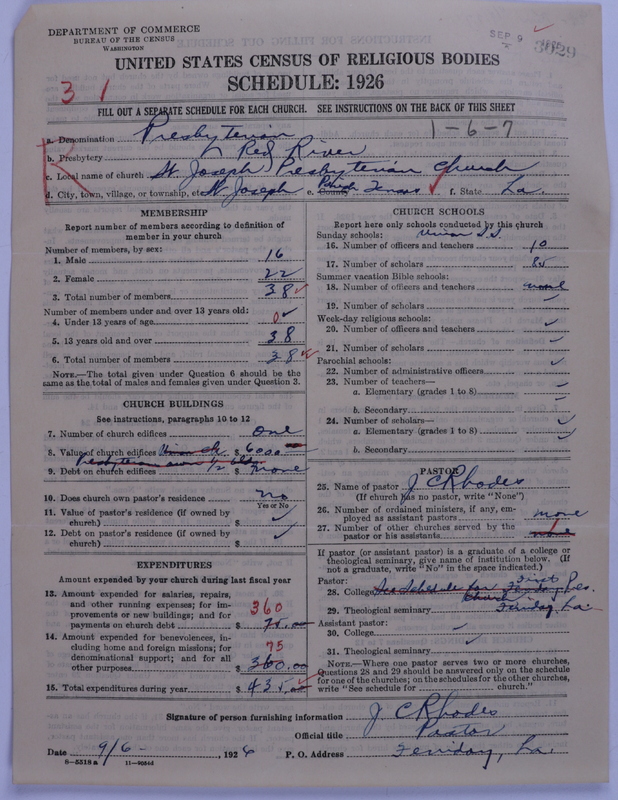 DEPARTMENT OF COMMERCE
BUREAU OF THE CENSUS
WASHINGTON
SEP 9
3029
UNITED STATES CENSUS OF RELIGIOUS BODIES
SCHEDULE: 1926
3 1
FILL OUT A SEPARATE SCHEDULE FOR EACH CHURCH. SEE INSTRUCTIONS ON THE BACK OF THIS SHEET
R
1-6-7
a. Denomination Presbyterian
b. Presbytery Red River
c. Local name of church St. Joseph Presbyterian Church
d. City, town, village, or township, etc St. Joseph e. County Parish Tensas f. State La.
MEMBERSHIP
Report number of members according to definition of member in your church
Number of members, by sex:
1. Male 16
2. Female 22
3. Total number of members 38
Number of members under and over 13 years old:
4. Under 13 years of age 0
5. 13 years old and over 38
6. Total number of members 38
NOTE.—The total given under Question 6 should be the same as the total of males and females given under Question 3.
CHURCH BUILDINGS
See instructions, paragraphs 10 to 12
7. Number of church edifices One
8. Value of church edifices Union ch $ 6000
Presbyterian own 1/2 bldg
9. Debt on church edifices $ none
10. Does church own pastor's residence No
Yes or No
11. Value of pastor's residence (if owned by church) $
12. Debt on pastor's residence (if owned by church) $
EXPENDITURES
Amount expended by your church during last fiscal year
13. Amount expended for salaries, repairs, and other running expenses; for improvements or new buildings; and for payments on church debt $ 75.00
360
14. Amount expended for benevolences, including home and foreign missions; for denominational support; and for all other purposes $ 360.00
75
15. Total expenditures during year $ 435.00
CHURCH SCHOOLS
Report here only schools conducted by this church
Sunday schools: Union S.S.
16. Number of officers and teachers 10
17. Number of scholars 85
Summer vacation Bible schools:
18. Number of officers and teachers none
19. Number of scholars
Week-day religious schools:
20. Number of officers and teachers
21. Number of scholars
Parochial schools:
22. Number of administrative officers
23. Number of teachers—
a. Elementary (grades 1 to 8)
b. Secondary
24. Number of scholars—
a. Elementary (grades 1 to 8)
b. Secondary
PASTOR
25. Name of pastor J C Rhodes
(If church has no pastor, write "None")
26. Number of ordained ministers, if any, employed as assistant pastors none
27. Number of other churches served by the pastor or his assistants none
If pastor (or assistant pastor) is a graduate of a college or theological seminary, give name of institution below. (If not a graduate, write "No" in the space indicated.)
Pastor:
28. College See Schedule for First Pres.
Church
29. Theological seminary Ferriday, La
Assistant pastor:
30. College
31. Theological seminary
NOTE.—Where one pastor serves two or more churches, Questions 28 and 29 should be answered only on the schedule for one of the churches; on the schedules for the other churches, write "See schedule for church."
Signature of person furnishing information J C Rhodes
Official title Pastor
Date 9/6- , 1926 P. O. Address Ferriday, La.
8-5518 a 11-9054d